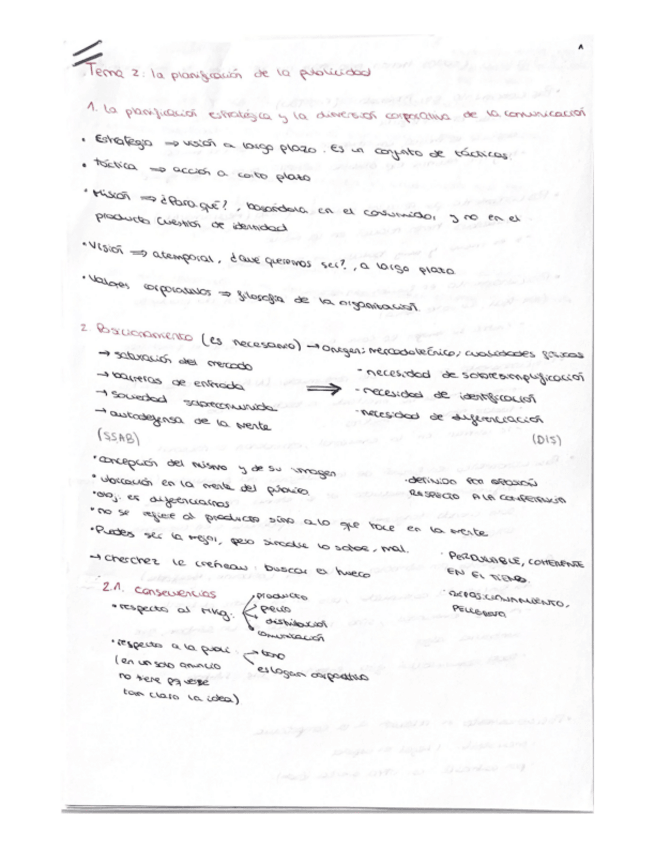 1
Tema 2: la planificación de la publicidad
1. La planificación estratégica y la dimensión corporativa de la comunicación
• Estrategia ⇒ visión a largo plazo. Es un conjunto de tácticas.
• Táctica ⇒ acción a corto plazo
• Misión ⇒ ¿Para qué?, basándola en el consumidor, y no en el
producto. Cuestión de identidad
• Visión ⇒ atemporal, ¿qué queremos ser?, a largo plazo
• Valores corporativos ⇒ filosofía de la organización
2. Posicionamiento (es necesario) → Origen: mercadotécnico, cualidades físicas
→ saturación del mercado
→ barreras de entrada
→ sociedad
→ autodefensa de la mente
(SSAB)
⇒
- necesidad de sobresimplificación
- necesidad de identificación
- necesidad de diferenciación
(DIS)
• concepción del mismo y de su imagen
• ubicación en la mente del público
• obj: es diferenciarnos
• no se refiere al producto sino a lo que hace en la mente
• Puedes ser la mejor, pero si nadie lo sabe, mal.
→ cherchez le créneau: buscar el hueco
· definido por
RESPECTO A LA COMPETENCIA
· PERDURABLE, COHERENTE
EN EL TIEMPO.
·
PELIGROSO
2.1. Consecuencias
• respecto al mkg:
producto
precio
distribución
comunicación
• respecto a la publi:
tono
eslogan corporativo
(en un solo anuncio
no tiene pq verse
tan claro la idea)